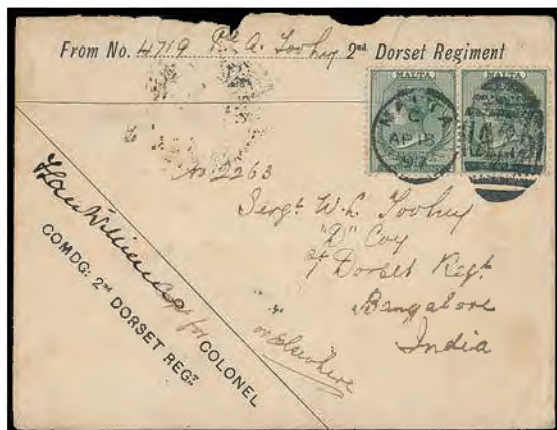 From No. 4719 Pte A. Toohey 2nd Dorset Regiment
MALTA MALTA
MALTA
C
AP 18
97
To
No 2263
Sergt W. L. Toohey
"D" Coy
Dorset Regt
Bangalore
India
or Elsewhere
Williams
Capt for COLONEL
COMDG: 2ND DORSET REGT